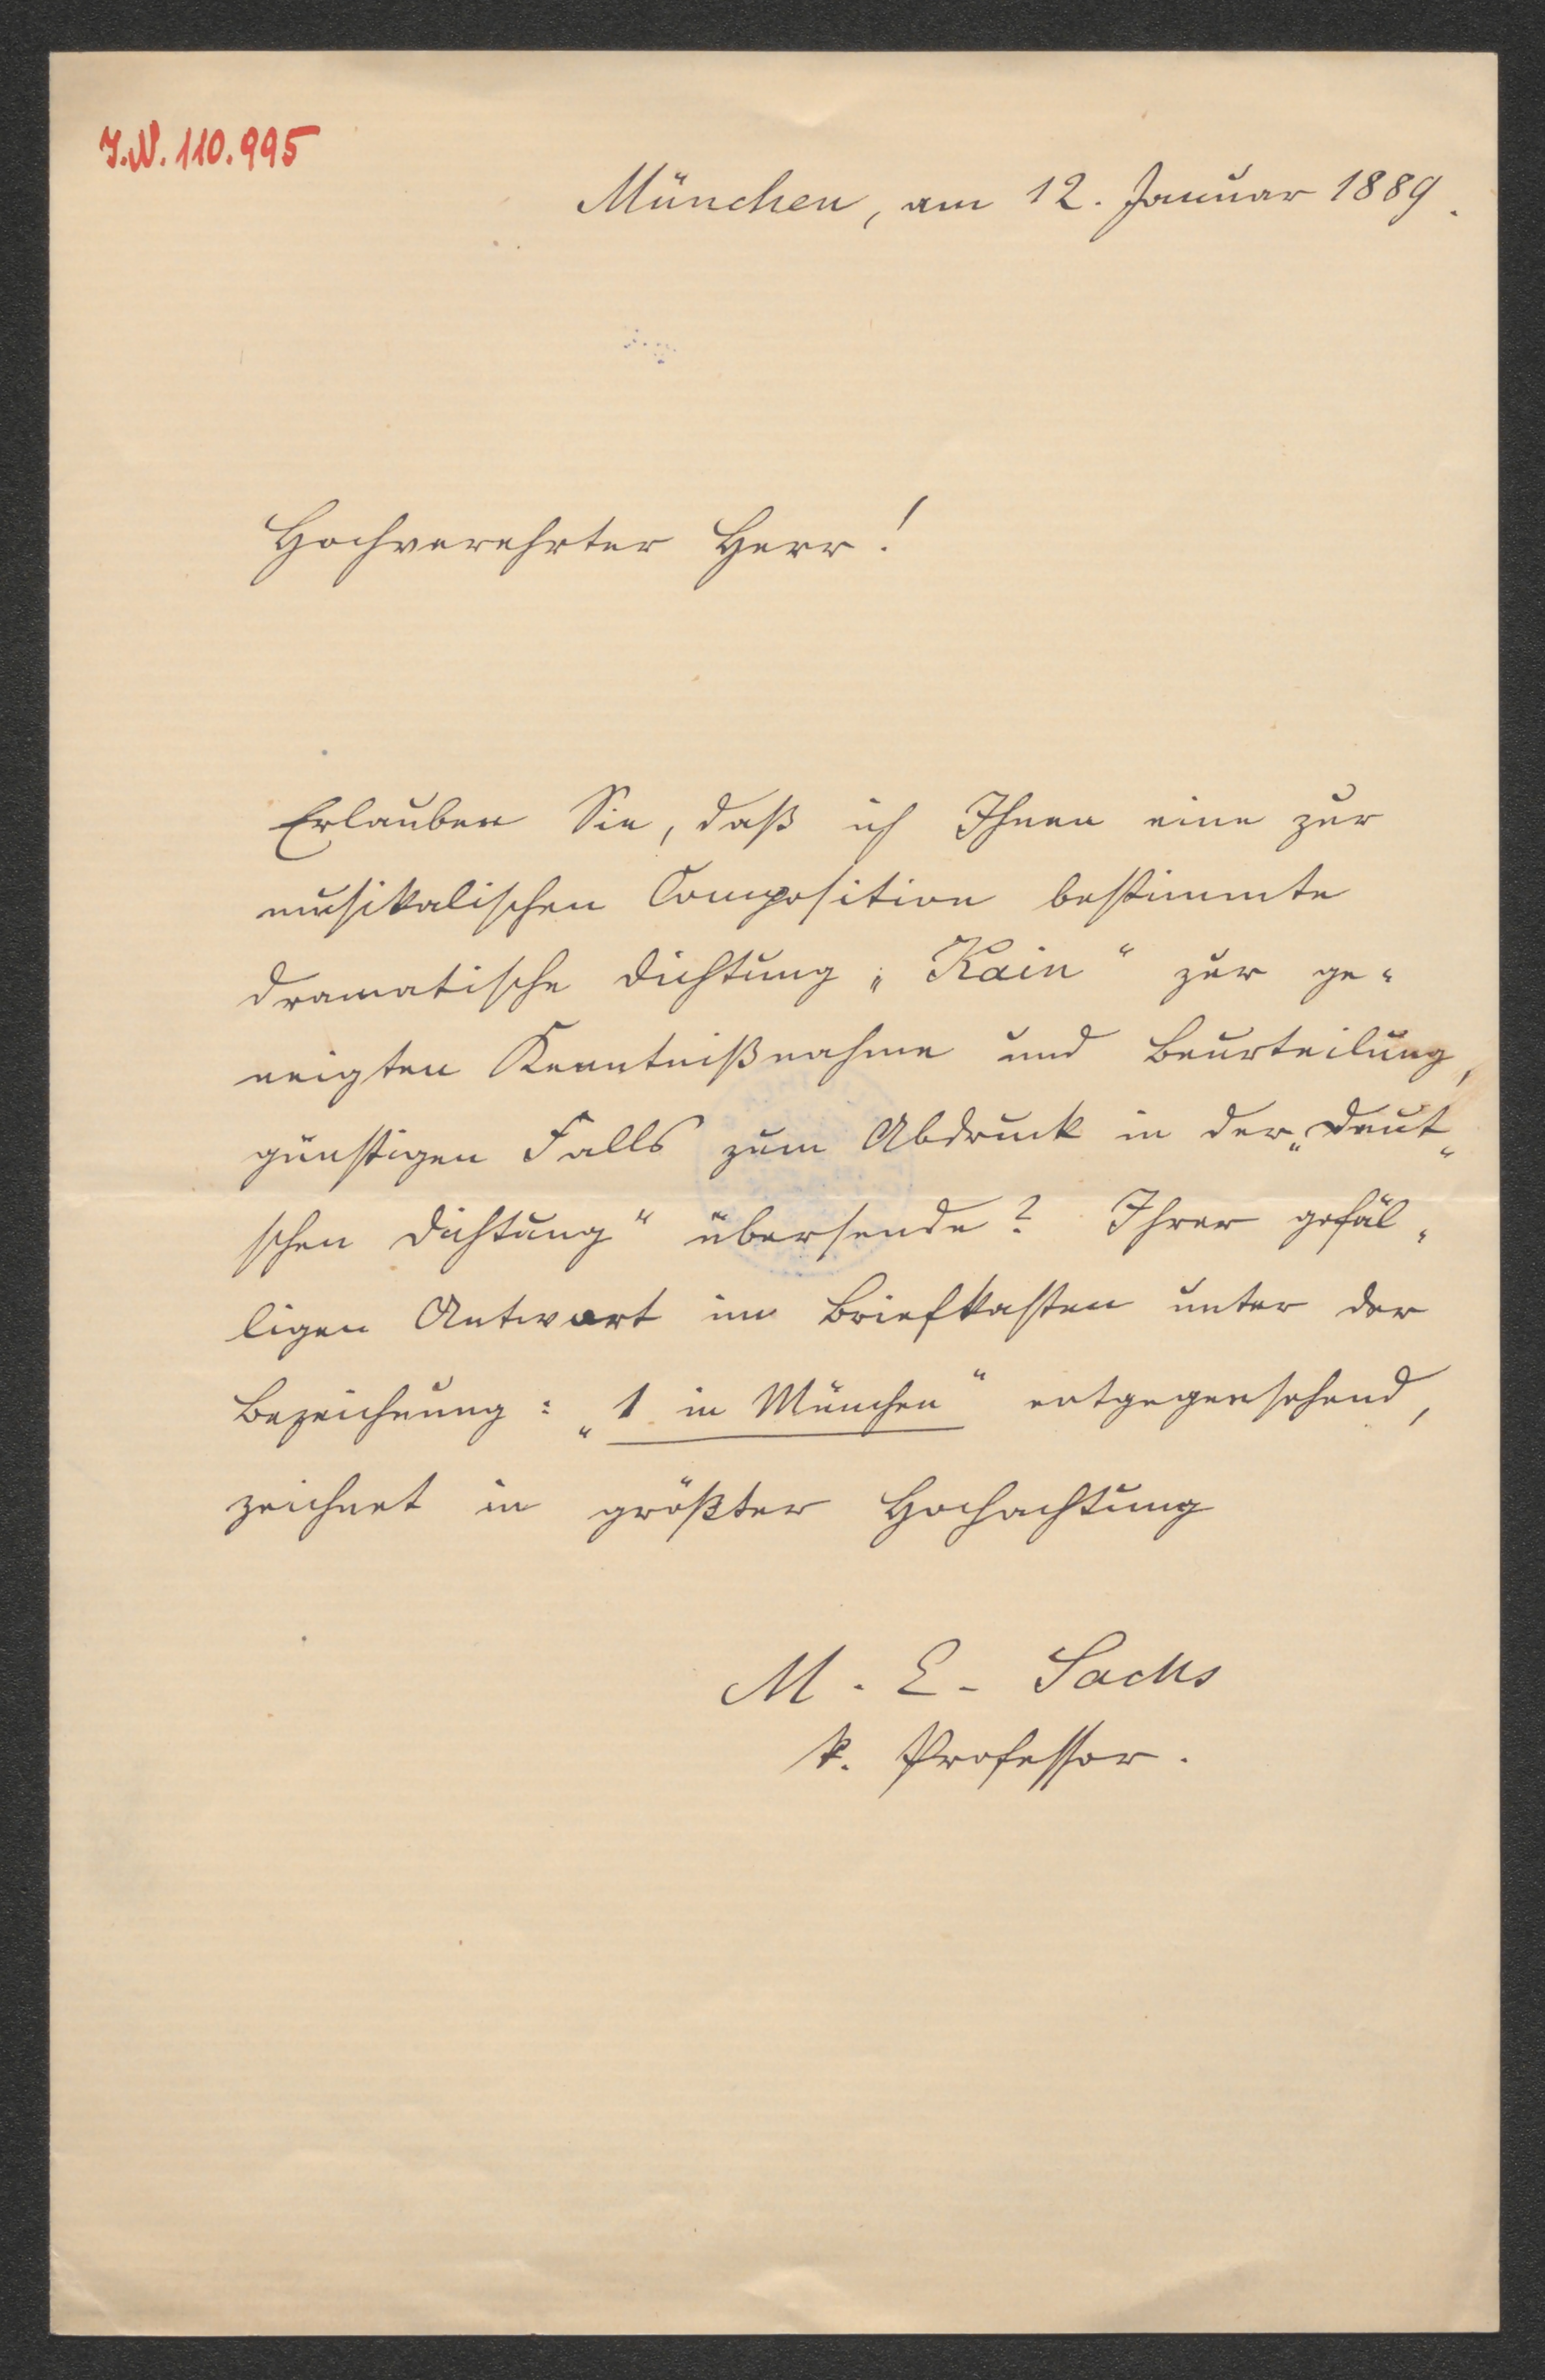 I.N. 110.995
München, am 12. Januar 1889.
Hochverehrter Herr!
Erlauben Sie, daß ich Ihnen eine zur
musikalischen Composition bestimmte
dramatische Dichtung „Kain“ zur ge-
neigten Kenntnißnahme und Beurteilung,
günstigen Falls zum Abdruck in der „Deut-
schen Dichtung“ übersende? Ihrer gefäl-
ligen Antwort im Briefkasten unter der
Bezeichnung: „1 in München“ entgegensehend,
zeichnet in größter Hochachtung
M. E. Sachs
k. Professor.